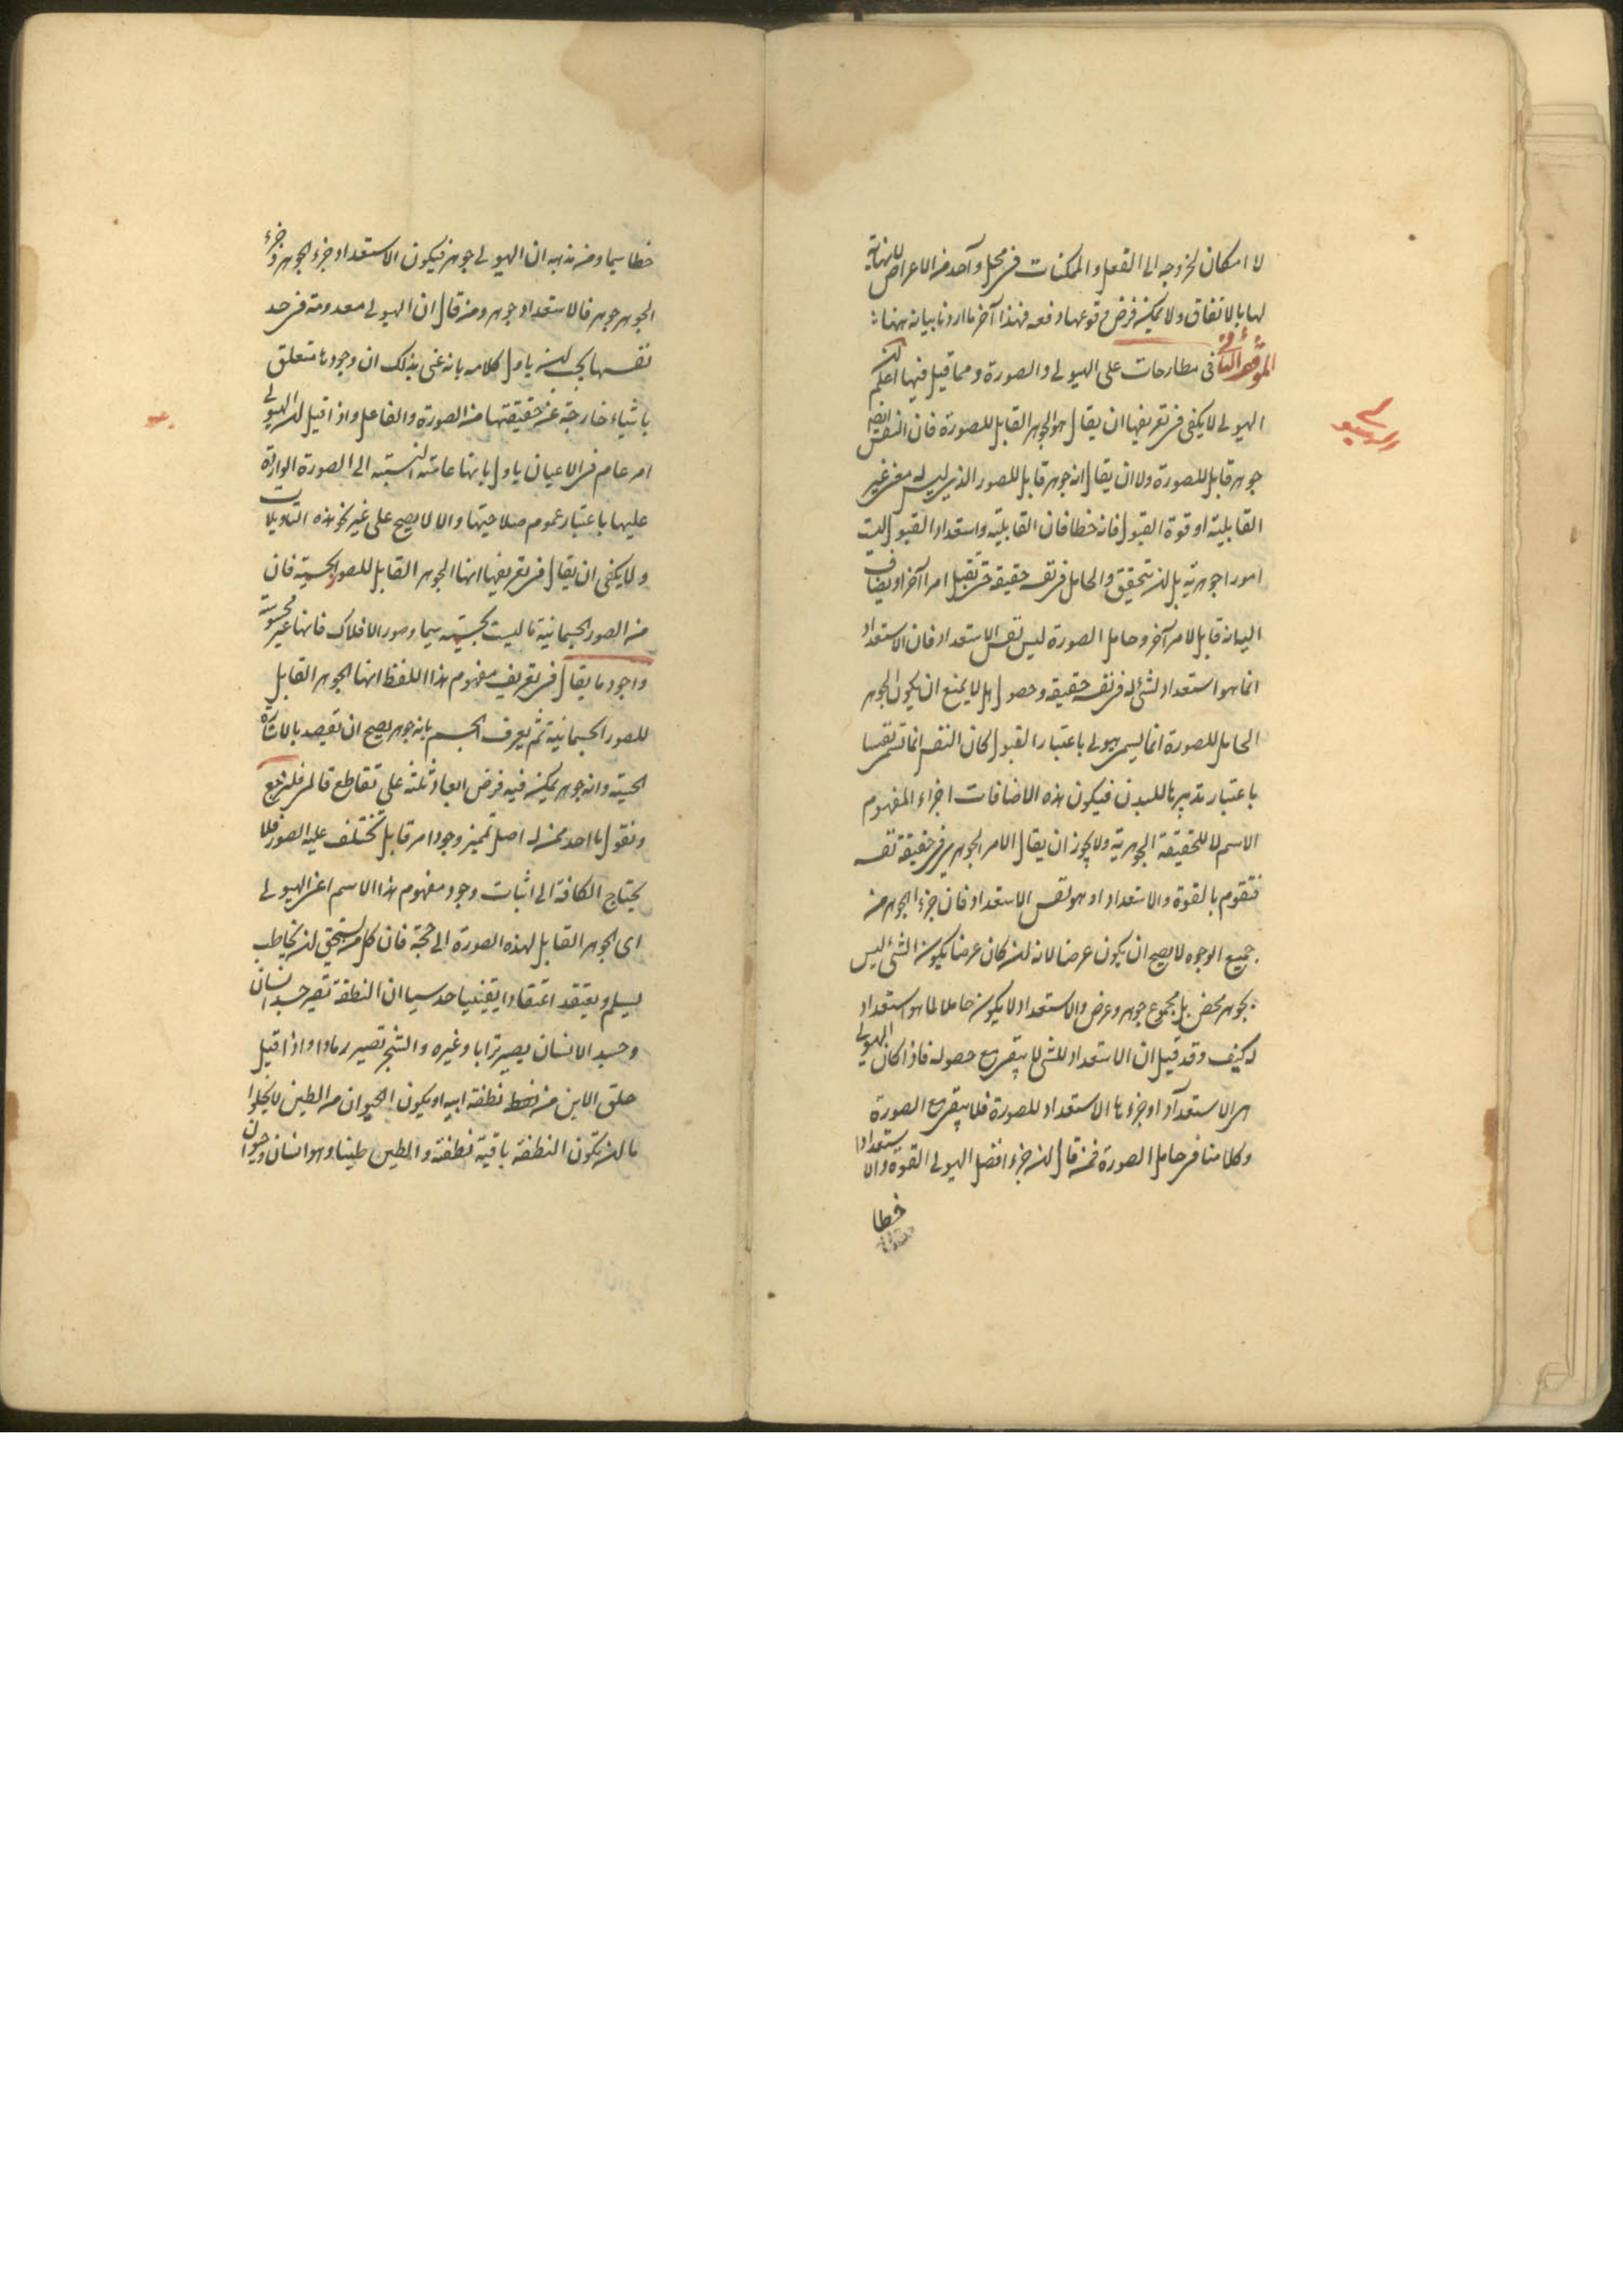 لا امكان لخروجه الى الفعل والممكنات فى محل واحد من الاعراض لا نهاية
لها بالاتفاق ولا يمكن فرض وقوعها دفعه فهذا آخر ما اردنا بيانه ههنا
فى مطارحات على الهيولى والصورة ومما قيل فيها اعلم ان
الهيولى لا يكفى فى تعريفها ان يقال هو الجوهر القابل للصورة فان النفس ايضا
جوهر قابل للصورة ولا ان يقال انه جوهر قابل للصور الذى ليس له معنى غير
القابلية او قوة القبول فانه خطا فان القابلية واستعداد القبول ليست
امورا جوهرية بل ان يتحقق والحامل فى نفس حقيقته حتى تقبل امرا آخر او يضاف
اليه انه قابل لامر آخر وحامل الصورة ليس نفس الاستعداد فان الاستعداد
انما هو استعداد لشئ له فى نفسه حقيقة وحصول بل لا يمنع ان يكون الجوهر
الحامل للصورة انما يسمى هيولى باعتبار القبول كان النفس انما تسمى نفسا
باعتبار تدبيرها للبدن فيكون هذه الاضافات اجزاء المفهوم
الاسم لا للحقيقة الجوهرية ولا يجوز ان يقال الامر الجوهرى فى حقيقة نفسه
فتقوم بالقوة والاستعداد او هو نفس الاستعداد فان جزء الجوهر من
جميع الوجوه لا يصح ان يكون عرضا لانه ان كان عرضا يكون الشئ ليس
بجوهر محض بل مجموع جوهر وعرض والاستعداد لا يكون حاملا لما هو استعداد
له كيف وقد قيل ان الاستعداد للشئ لا يبقى مع حصوله فاذا كان الهيولى
هى الاستعداد او جزءها الاستعداد للصورة فلا يبقى مع الصورة
وكلامنا فى حامل الصورة فمن قال ان جزء افضل الهيولى القوة والاستعداد
خطا
خطا سيما ومن مذهبه ان الهيولى جوهر فيكون الاستعداد جزء الجوهر وجزء
الجوهر جوهر فالاستعداد جوهر ومن قال ان الهيولى معدومة فى حد
نفسها يجب ان ياول كلامه بانه عنى بذلك ان وجودها متعلق
باشياء خارجة عن حقيقتها من الصورة والفاعل واذا قيل ان الهيولى
امر عام فى الاعيان ياول بانها عامة النسبة الى الصورة الواردة
عليها باعتبار عموم صلاحيتها والا لا يصح على غير نحو هذه التاويلات
ولا يكفى ان يقال فى تعريفها انها الجوهر القابل للصور الحسية فان
من الصور الجسمانية ما ليست بحسية سيما وصور الافلاك فانها غير محسوسة
واجود ما يقال فى تعريف مفهوم هذا اللفظ انها الجوهر القابل
للصور الجسمانية ثم يعرف الجسم بانه جوهر يصح ان يقصد بالاشارة
الحسية وانه جوهر يمكن فيه فرض ابعاد ثلثة على تقاطع قائم فلنرجع
ونقول ما احد ممن له اصل تميز وجود امر قابل تختلف عليه الصور فلا
يحتاج الكافة الى اثبات وجود مفهوم هذا الاسم اعنى الهيولى
اى الجوهر القابل لهذه الصورة الى حجة فان كل من يستحق ان يخاطب
يسلم ويعتقد اعتقادا يقينيا حدسيا ان النطفة تصير جسد انسان
وجسد الانسان يصير ترابا وغيره والشجر تصير رمادا واذا قيل
خلق الابن من نطفة ابيه او يكون الحيوان من الطين لا يخلوا
ما ان تكون النطفة باقية نطفة والطين طينا وهو انسان وحيوان